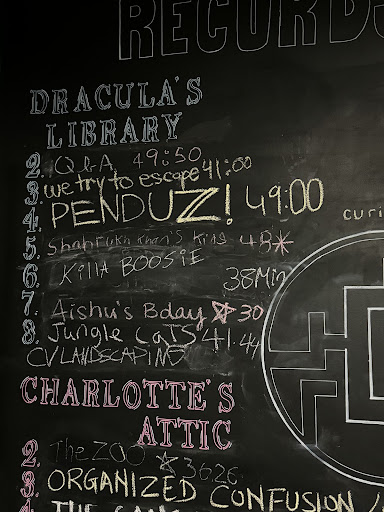 RECORDS
DRACULA'S
LIBRARY
2. Q&A 49:50
3. we try to escape 41:00
4. PENDUZ! 49:00
5. Shahrukh Khan's King 48*
6. KillA BOOSIE
38 Min
7. Aishu's Bday ☆ 30
8. Jungle CaTS 41.44
CV LANDSCAPING
curi
CHARLOTTE'S
ATTIC
2. The ZOO ☆ 36:26
3. ORGANIZED CONFUSION